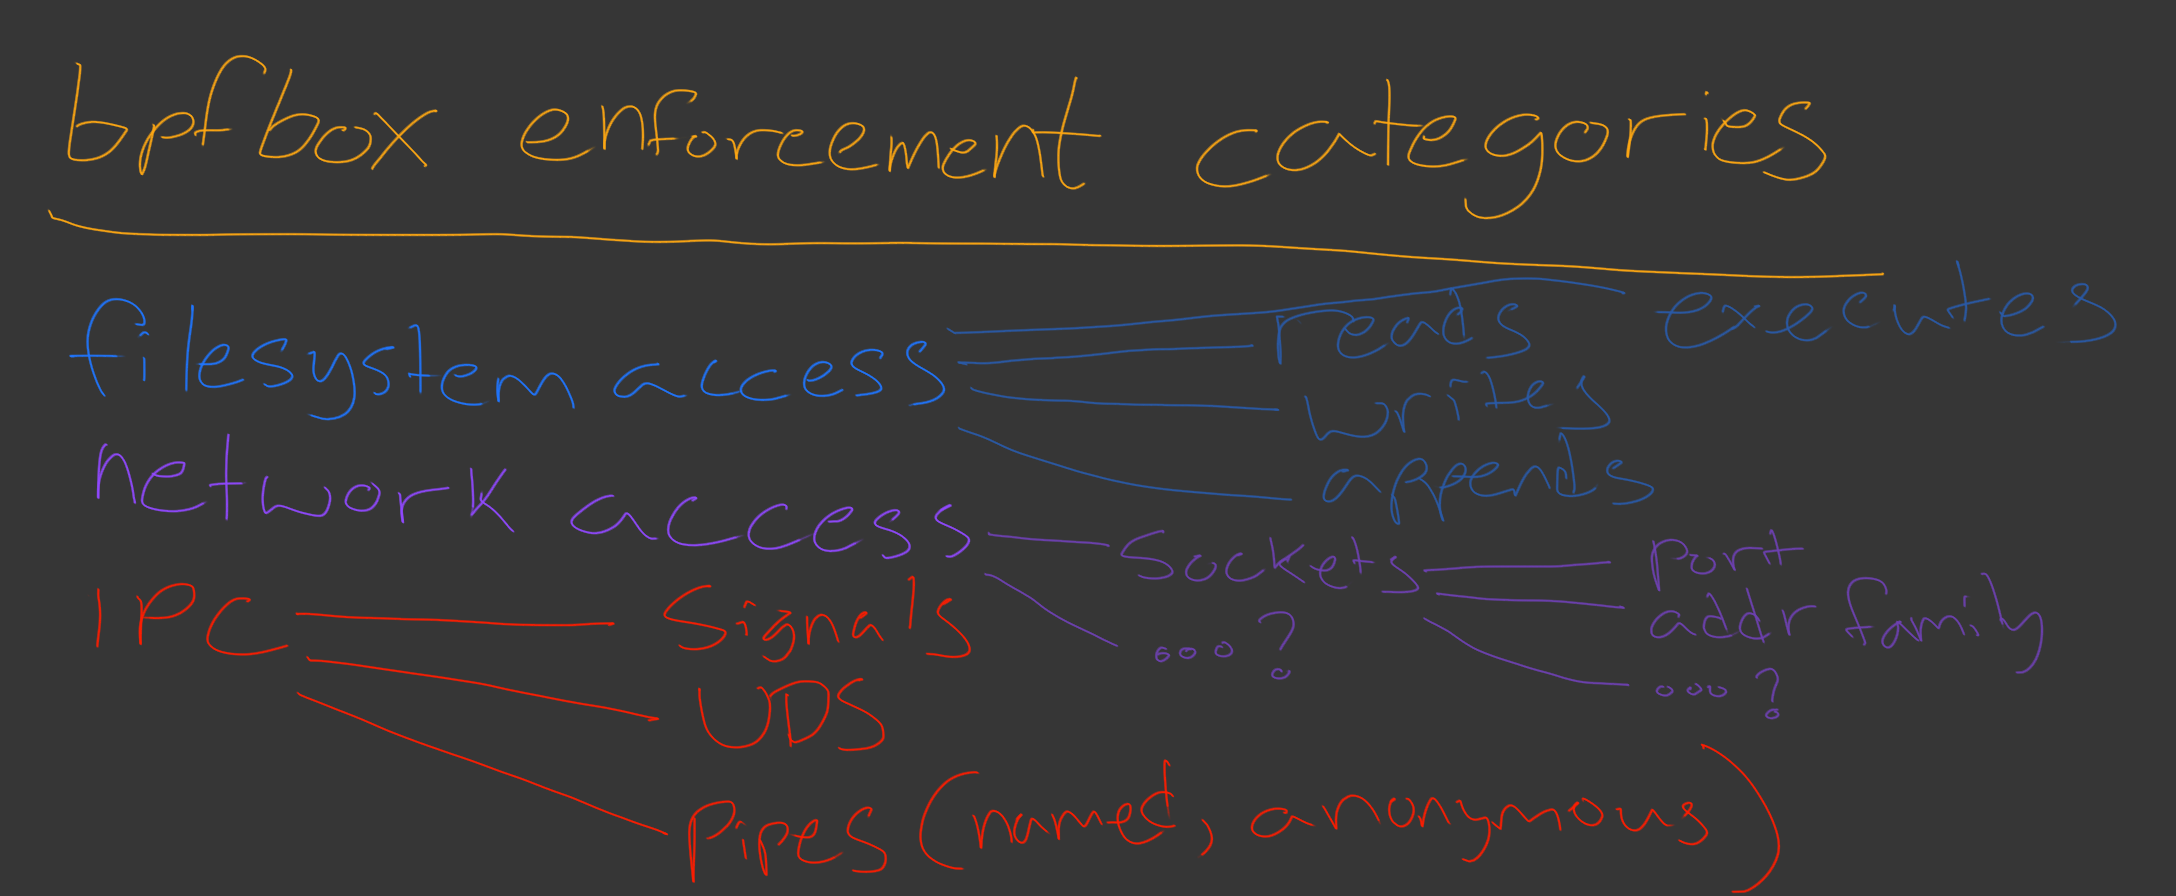 bpfbox enforcement categories
filesystem access
executes
reads
writes
appends
network access
sockets
port
addr family
...?
...?
IPC
signals
UDS
pipes (named, anonymous)